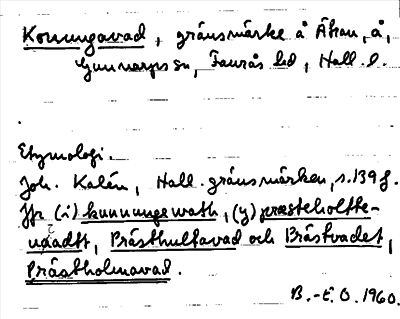 Konungavad, gränsmärke å Ätran, å,
Gunnarps sn, Faurås hd, Hall. l.
Etymologi.
Joh. Kalén, Hall. gränsmärken, s. 139 f.
Jfr (i) kunnungewath, (y) præsteholtte-
waadtt, Prästhultavad och Bråstvadet,
Prästholmavad.
B.-E. O. 1960.